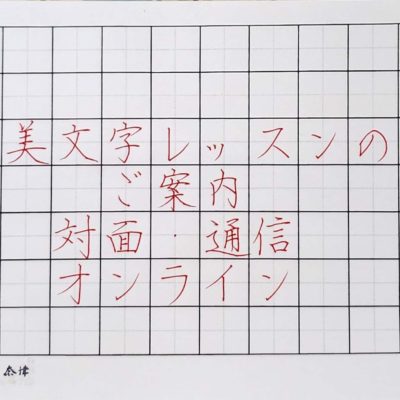 美文字レッスンの
ご案内
対面・通信
オンライン